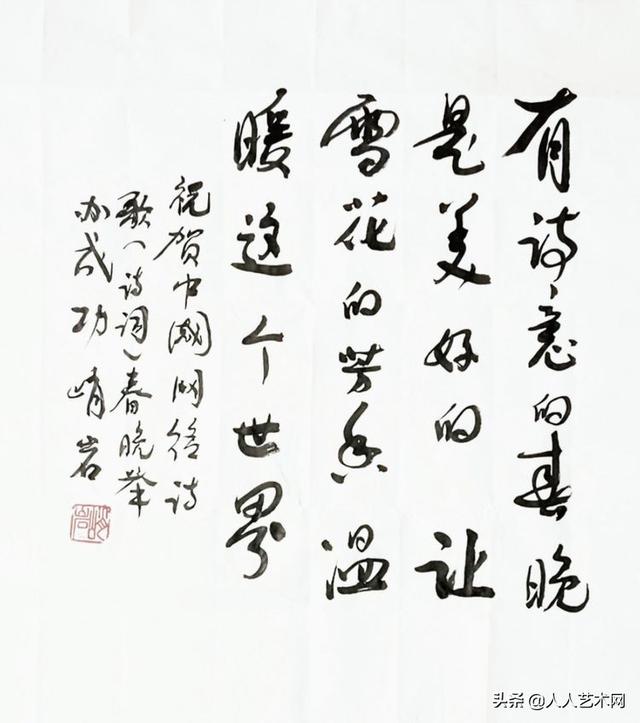 有诗意的春晚
是美好的 让
雪花的芳香温
暖这个世界
祝贺中國网络诗
歌(诗词)春晚举
办成功 峭岩
峭岩
头条 @人人艺术网